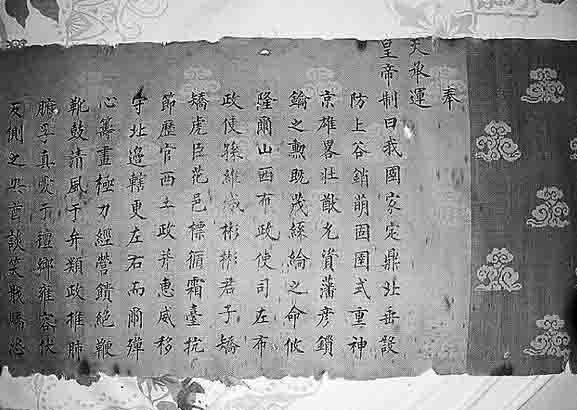 奉
天承運
皇帝制曰我國家定鼎北垂設
防上谷銷萌固圉式重神
京雄畧壯猷允資藩彥鎖
鑰之勲既茂絲綸之命攸
隆爾山西布政使司左布
政使孫維城彬彬君子矯
矯虎臣花邑標循霜臺抗
節歷官西土政并惠威移
守北邊轄更左右而爾殫
心籌畫極力經營饋絕鞭
靴鼓請風于弁類政推肺
膽孚真愛于鄉雍容伏
反側之酋談笑戢驕恣